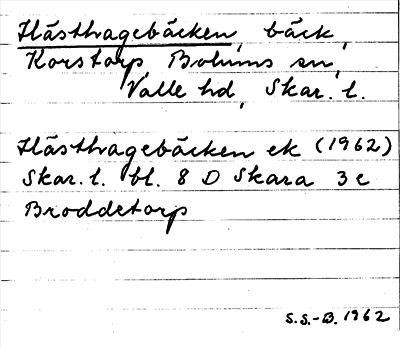 Hästhagebäcken, bäck,
Korstorp Bolums sn,
Valle hd, Skar. l.
Hästhagebäcken ek (1962)
Skar. l. bl. 8 D Skara 3 e
Broddetorp
S.S.-B. 1962